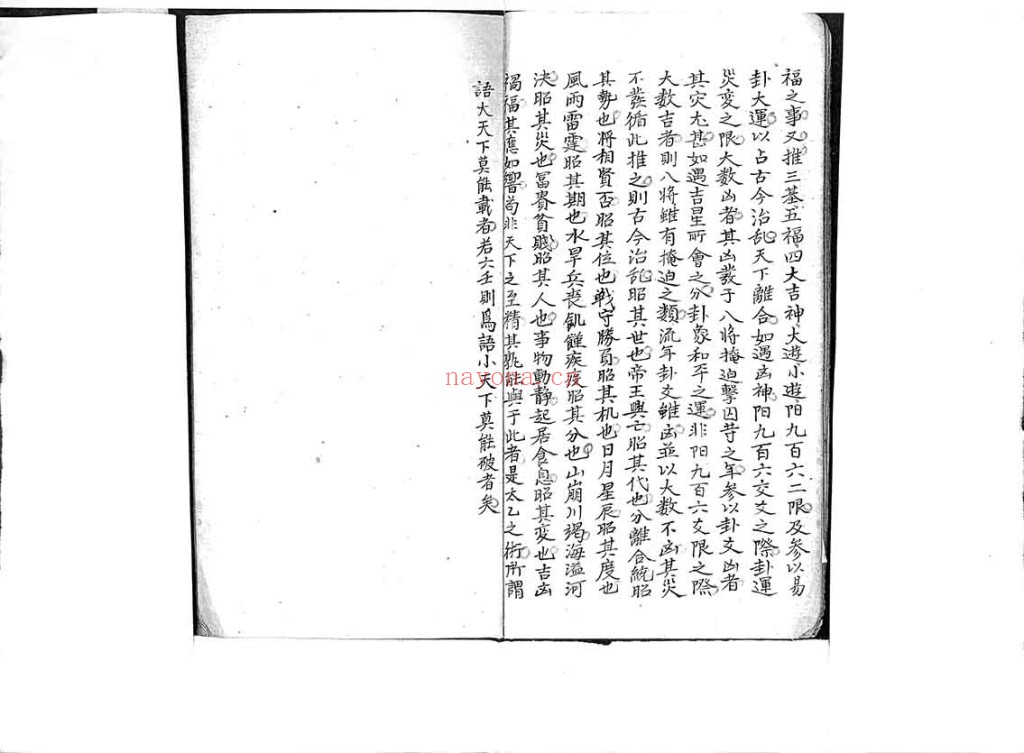 福之事又推三基五福四大吉神大遊小遊陽九百六二限及參以易
卦大運以占古今治乱天下離合如遇凶神陽九百六交爻之際卦運
災変之限大数凶者其凶發于八將掩迫擊囚苛之年參以卦爻凶者
其灾尢甚如遇吉星所會之分卦象和平之運非阳九百六爻限之際
大数吉者則八將雖有掩迫之類流年卦爻雖凶並以大数不凶其災
不發循此推之則古今治乱昭其世也帝王興亡昭其代也分離合統昭
其勢也將相賢否昭其位也戦守勝負昭其机也日月星辰昭其度也
風雨雷霆昭其期也水旱兵喪飢饉疾疫昭其分也山崩川竭海溢河
决昭其災也富貴貧賤昭其人也事物動靜起居食息昭其変也吉凶
禍福其應如響苟非天下之至精其孰能與于此者是太乙之術所謂
語大天下莫能載者若六壬則爲語小天下莫能破者矣
nayona.cn